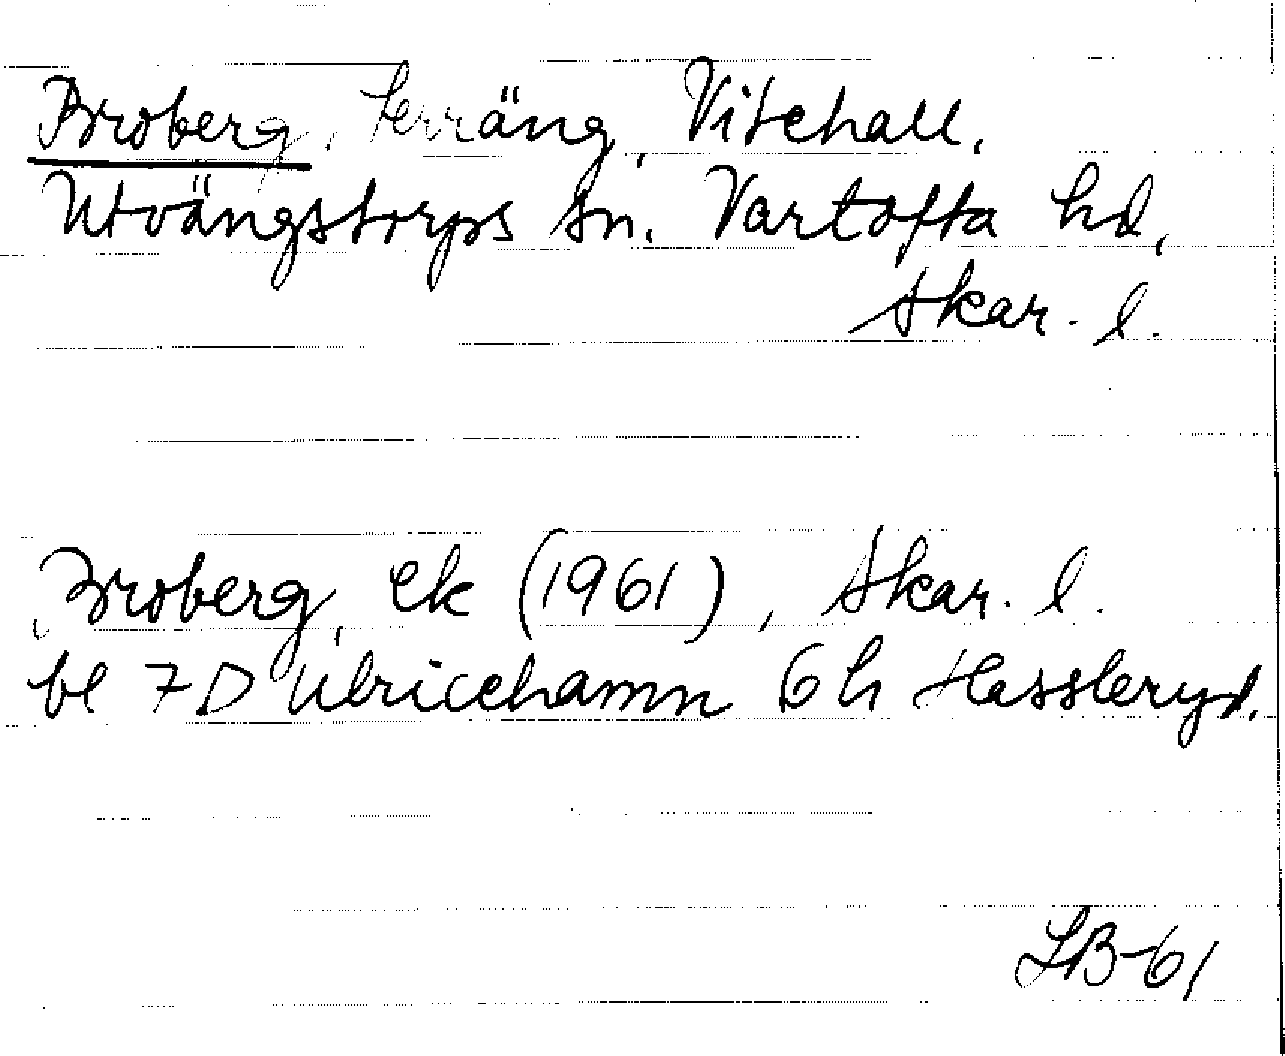 Broberg, terräng, Vitehall,
Utvängstorps sn. Vartofta hd,
Skar. l.
Broberg, ek (1961), Skar. l.
bl 7D Ulricehamn 6h Hassleryd.
LB-61